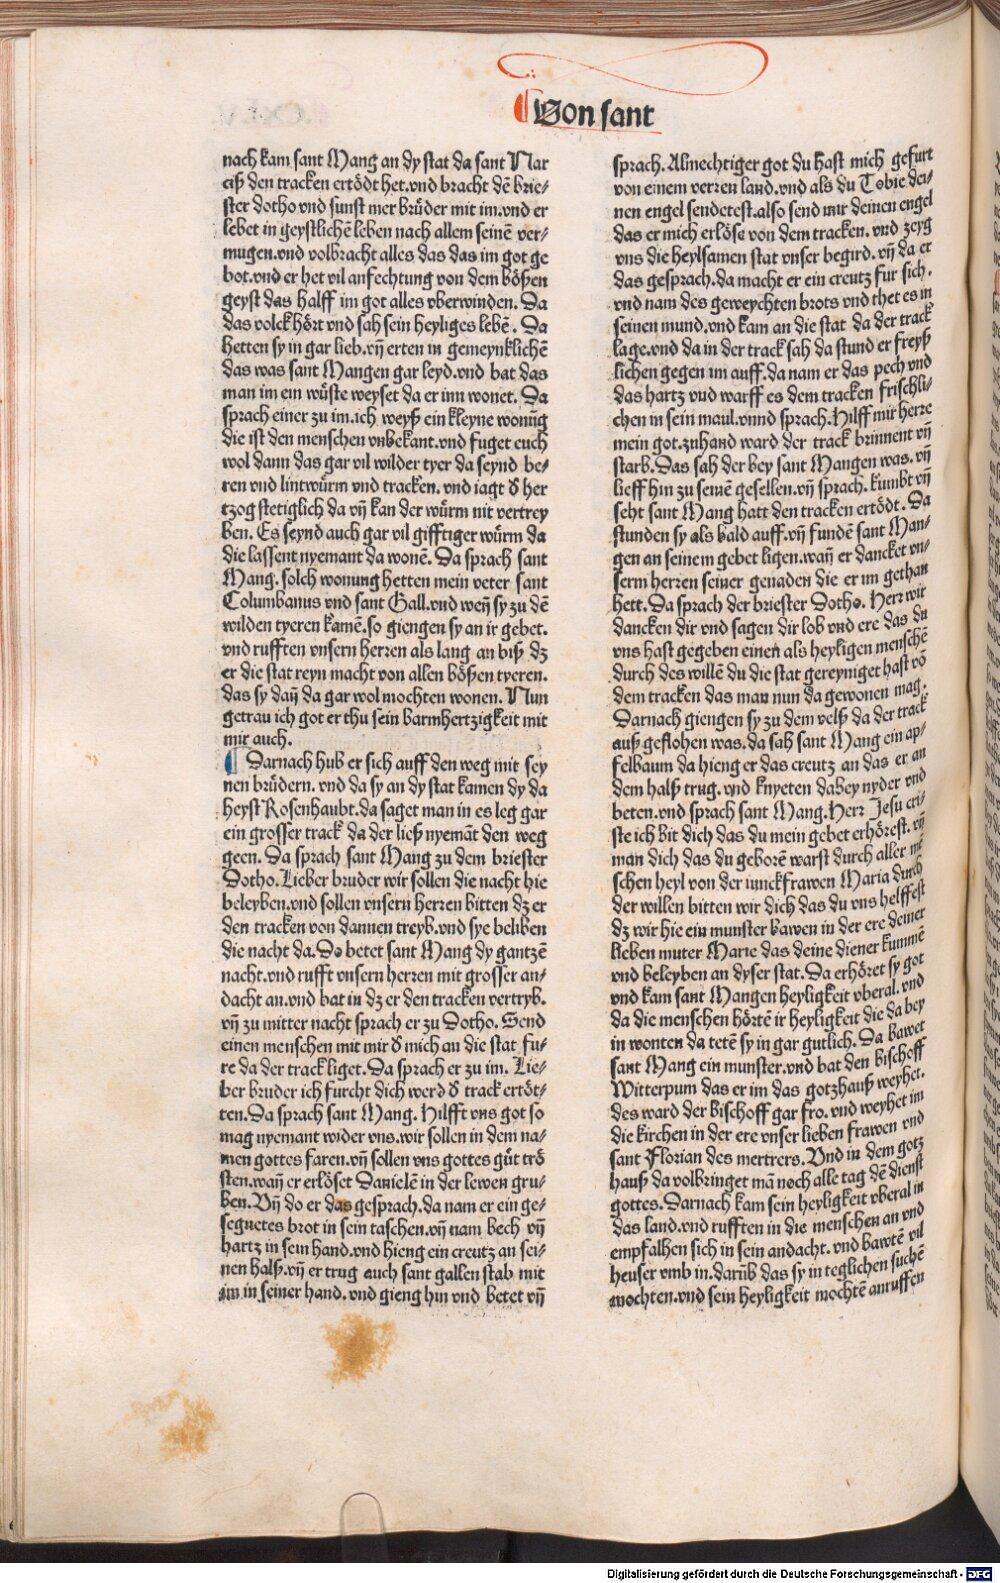 Von sant
nach kam sant Mang an dy stat da sant Nar
ciß den tracken ertödt het.vnd bracht dē brie-
ster dotho vnd sunst mer brüder mit im.vnd er
lebet in geystlichē leben nach allem seinē ver-
mugen.vnd volbracht alles das das im got ge
bot.vnd er het vil anfechtung von dem bößen
geyst das halff im got alles vberwinden. Da
das volck hört vnd sah sein heyliges lebē. Da
hetten sy in gar lieb.vñ erten in gemeynklichē
das was sant Mangen gar leyd.vnd bat das
man im ein wüste weyset da er inn wonet. Da
sprach einer zu im.ich weyß ein kleyne wonūg
die ist den menschen vnbekant.vnd fuget euch
wol dann das gar vil wilder tyer da seynd be-
ren vnd lintwürm vnd tracken. vnd iagt d̕ her
tzog stetiglich da vñ kan der würm nit vertrey
ben. Es seynd auch gar vil gifftiger würm da
die lassent nyemant da wonē. Da sprach sant
Mang. solch wonung hetten mein veter sant
Columbanus vnd sant Gall.vnd weñ sy zu dē
wilden tyeren kamē.so giengen sy an ir gebet.
vnd rufften vnsern herren als lang an biß dz
er die stat reyn macht von allen bößen tyeren.
das sy dañ da gar wol mochten wonen. Nun
getrau ich got er thu sein barmhertzigkeit mit
mir auch.
Darnach hub er sich auff den weg mit sey
nen brüdern. vnd da sy an dy stat kamen dy da
heyst Rosenhaubt.da saget man in es leg gar
ein grosser track da der ließ nyemāt den weg
geen. Da sprach sant Mang zu dem briester
Dotho.Lieber bruder wir sollen die nacht hie
beleyben.vnd sollen vnsern herren bitten dz er
den tracken von dannen treyb.vnd sye beliben
die nacht da.Do betet sant Mang dy gantzē
nacht.vnd rufft vnsern herren mit grosser an-
dacht an.vnd bat in dz er den tracken vertryb.
vñ zu mitter nacht sprach er zu Dotho. Send
einen menschen mit mir d̕ mich an die stat fu-
re da der track liget.Da sprach er zu im. Lie-
ber bruder ich furcht dich werd d̕ track ertöt-
ten.Da sprach sant Mang. Hilfft vns got so
mag nyemant wider vns.wir sollen in dem na-
men gottes faren.vñ sollen vns gottes güt trö
sten.wañ er erlöset Danielē in der lewen gru-
ben. Vñ do er das gesprach.da nam er ein ge-
segnetes brot in sein taschen.vñ nam bech vñ
hartz in sein hand.vnd hieng ein creutz an sei-
nen halß.vñ er trug auch sant gallen stab mit
im in seiner hand. vnd gieng hin vnd betet vñ
sprach. Almechtiger got du hast mich gefurt
von einem verren land.vnd als du Tobie dei-
nen engel sendetest.also send mir deinen engel
das er mich erlöse von dem tracken. vnd zeyg
vns die heylsamen stat vnser begird. vñ da er
das gesprach.da macht er ein creutz fur sich.
vnd nam des geweychten brots vnd thet es in
seinen mund.vnd kam an die stat da der track
lage.vnd da in der track sah da stund er freyß
lichen gegen im auff.da nam er das pech vnd
das hartz vnd warff es dem tracken frischli-
chen in sein maul.vnnd sprach.Hilff mir herre
mein got.zuhand ward der track brinnent vñ
starb.Das sah der bey sant Mangen was. vñ
lieff hin zu seinē gesellen.vñ sprach. kumbt vñ
seht sant Mang hatt den tracken ertödt. Da
stunden sy als bald auff.vñ fundē sant Man-
gen an seinem gebet ligen.wañ er dancket vn-
serm herren seiner genaden die er im gethan
hett. Da sprach der briester Dotho. Herr wir
dancken dir vnd sagen dir lob vnd ere das du
vns hast gegeben einen als heyligen menschē
durch des willē du die stat gereyniget hast vō
dem tracken das man nun da gewonen mag.
Darnach giengen sy zu dem velß da der track
auß geflohen was.da sah sant Mang ein ap-
felbaum da hieng er das creutz an das er an
dem halß trug. vnd knyeten dabey nyder vnd
beten.vnd sprach sant Mang.Herr Jesu cri-
ste ich bit dich das du mein gebet erhörest. vñ
man dich das du geborē warst durch aller mē
schen heyl von der iunckfrawen Maria durch
der willen bitten wir dich das du vns helffest
dz wir hie ein munster bawen in der ere deiner
lieben muter Marie das deine diener kummē
vnd beleyben an dyser stat. Da erhöret sy got
vnd kam sant Mangen heyligkeit vberal. vnd
da die menschen hörtē ir heyligkeit die da bey
in wonten da tetē sy in gar gutlich. Da bawet
sant Mang ein munster.vnd bat den bischoff
Witterpum das er im das gotzhauß weyhet.
des ward der bischoff gar fro. vnd weyhet im
die kirchen in der ere vnser lieben frawen vnd
sant Florian des mertrers. Vnd in dem gotz
hauß da volbringet mā noch alle tag dē dienst
gottes. Darnach kam sein heyligkeit vberal in
das land.vnd rufften in die menschen an vnd
empfalhen sich in sein andacht. vnd bawtē vil
heuser vmb in.darūb das sy in teglichen suchē
mochten.vnd sein heyligkeit mochtē anruffen
Digitalisierung gefördert durch die Deutsche Forschungsgemeinschaft - DFG